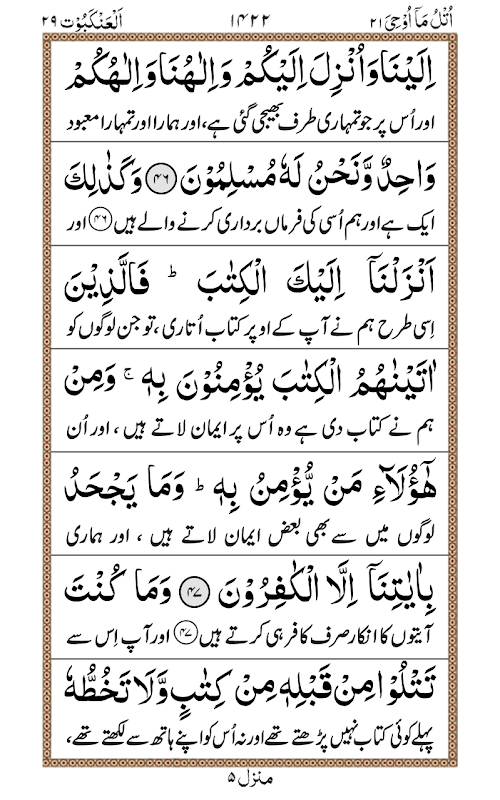 اُتْلُ مَآ اُوْحِیَ ۲۱ ۱۴۲۲ اَلْعَنْكَبُوْت ۲۹
اِلَيْنَا وَاُنْزِلَ اِلَيْكُمْ وَاِلٰهُنَا وَاِلٰهُكُمْ
اور اُس پر جو تمہاری طرف بھیجی گئی ہے، اور ہمارا اور تمہارا معبود
وَاحِدٌ وَّنَحْنُ لَهٗ مُسْلِمُوْنَ ۝۴۶ وَكَذٰلِكَ
ایک ہے اور ہم اُسی کی فرماں برداری کرنے والے ہیں ۝۴۶ اور
اَنْزَلْنَآ اِلَيْكَ الْكِتٰبَ ؕ فَالَّذِيْنَ
اِسی طرح ہم نے آپ کے اوپر کتاب اُتاری، تو جن لوگوں کو
اٰتَيْنٰهُمُ الْكِتٰبَ يُؤْمِنُوْنَ بِهٖ ۚ وَمِنْ
ہم نے کتاب دی ہے وہ اُس پر ایمان لاتے ہیں، اور اُن
هٰٓؤُلَآءِ مَنْ يُّؤْمِنُ بِهٖ ؕ وَمَا يَجْحَدُ
لوگوں میں سے بھی بعض ایمان لاتے ہیں، اور ہماری
بِاٰيٰتِنَآ اِلَّا الْكٰفِرُوْنَ ۝۴۷ وَمَا كُنْتَ
آیتوں کا انکار صرف کافر ہی کرتے ہیں ۝۴۷ اور آپ اِس سے
تَتْلُوْا مِنْ قَبْلِهٖ مِنْ كِتٰبٍ وَّلَا تَخُطُّهٗ
پہلے کوئی کتاب نہیں پڑھتے تھے اور نہ اُس کو اپنے ہاتھ سے لکھتے تھے،
منزل ۵